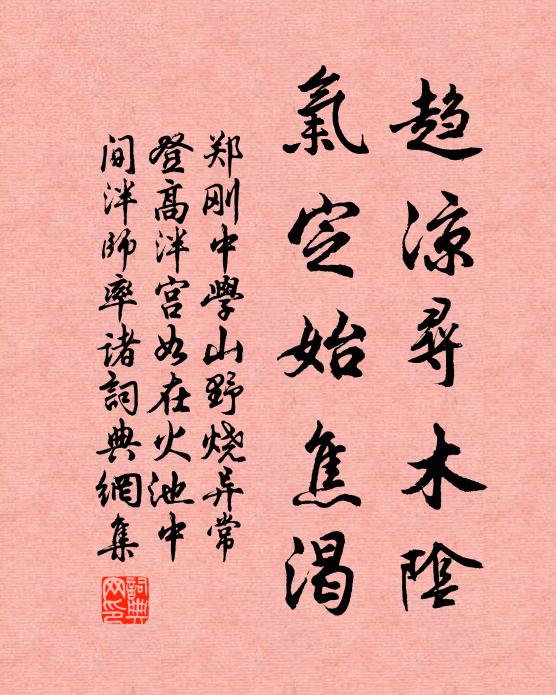 趋凉寻木阴
氣定始焦渴
郑刚中學山野烧异常
登高泮宫如在火池中
间泮师率诸詞典網集
詞典网印